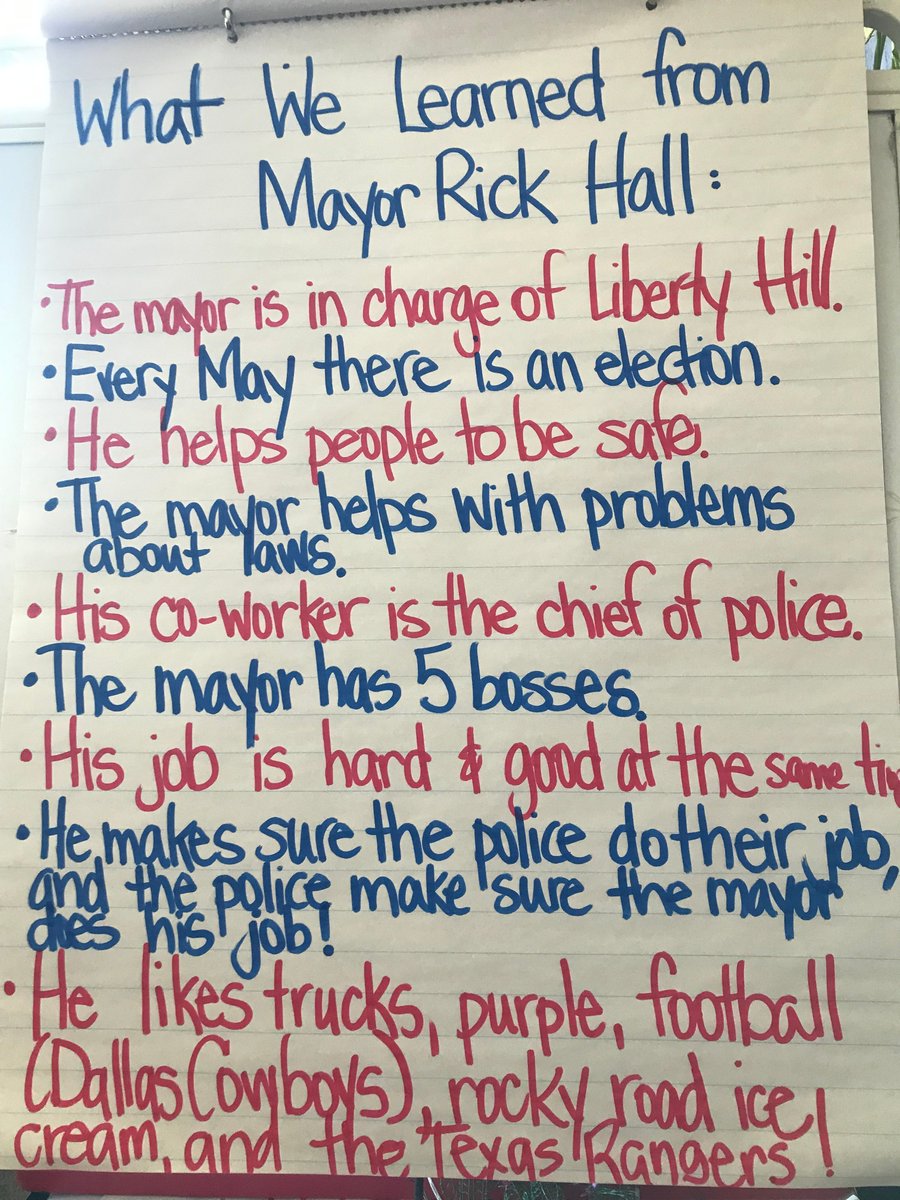 What We Learned from
Mayor Rick Hall:
• The mayor is in charge of Liberty Hill.
• Every May there is an election.
• He helps people to be safe.
• The mayor helps with problems
about laws.
• His co-worker is the chief of police.
• The mayor has 5 bosses.
• His job is hard & good at the same
• He makes sure the police do their job,
and the police make sure the mayor
does his job!
• He likes trucks, purple, football
(Dallas Cowboys), rocky road ice
cream, and the Texas Rangers!